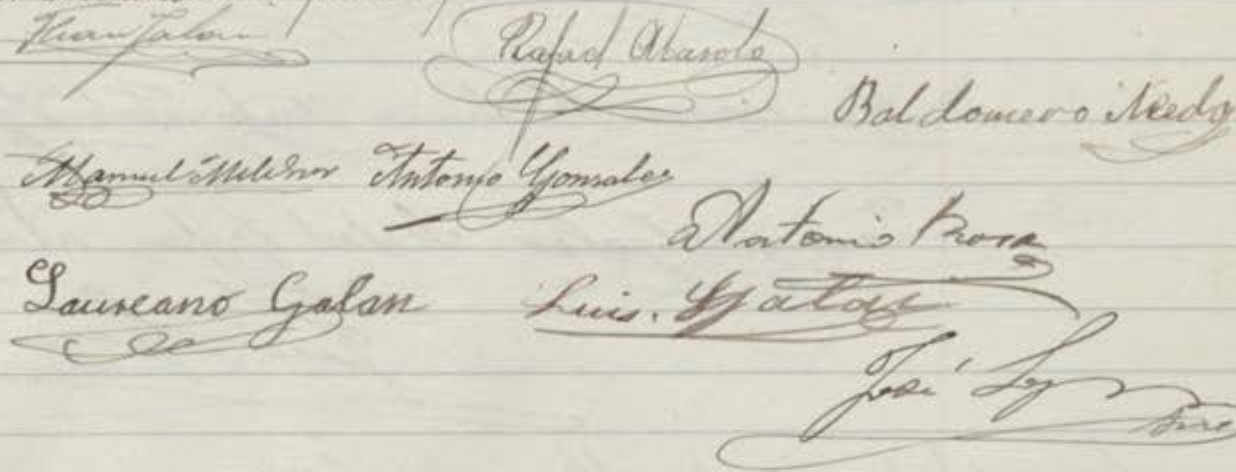 Juan Galan Rafael Abasolo
Baldomero
Manuel Melchor Antonio Gonzalez
Antonio Rosa
Laureano Galan Luis. Galan
José